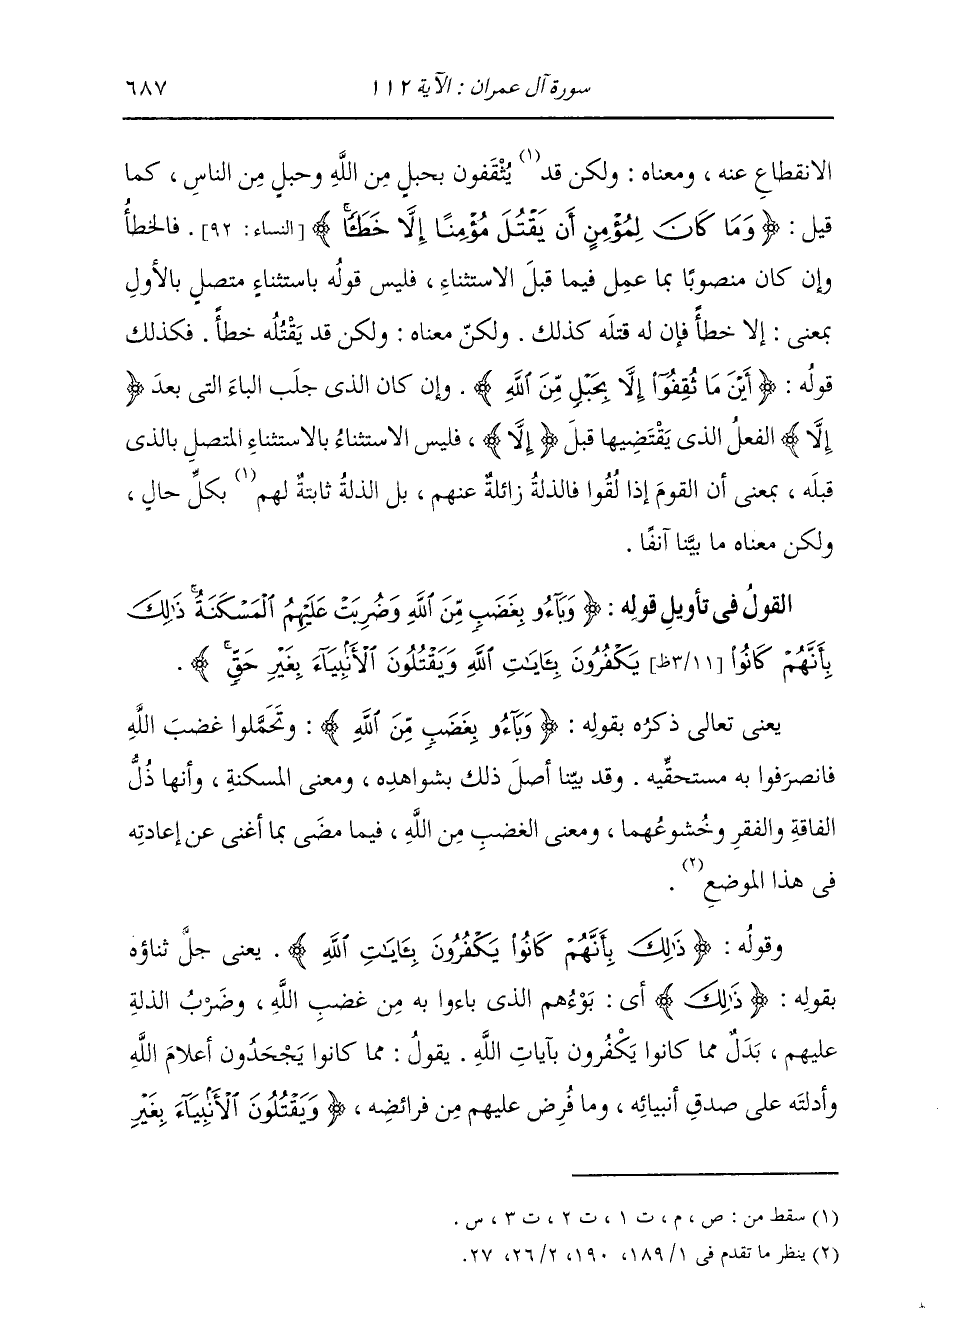 سورة آل عمران : الآية ١١٢ ٦٨٧
الانقطاعِ عنه ، ومعناه : ولكن قد(١) يُثْقَفون بحبلٍ مِن اللَّهِ وحبلٍ مِن الناسِ ، كما
قيل : ﴿ وَمَا كَانَ لِمُؤْمِنٍ أَن يَقْتُلَ مُؤْمِنًا إِلَّا خَطَـًٔا ﴾ [النساء: ٩٢] . فالخطأُ
وإن كان منصوبًا بما عمِل فيما قبلَ الاستثناءِ ، فليس قولُه باستثناءٍ متصلٍ بالأولِ
بمعنى : إلا خطأً فإن له قتلَه كذلك . ولكنّ معناه : ولكن قد يَقْتُلُه خطأً . فكذلك
قولُه : ﴿ أَيْنَ مَا ثُقِفُوٓا۟ إِلَّا بِحَبْلٍ مِّنَ ٱللَّهِ ﴾ . وإن كان الذى جلَب الباءَ التى بعدَ ﴿
إِلَّا ﴾ الفعلُ الذى يَقْتَضِيها قبلَ ﴿ إِلَّا ﴾ ، فليس الاستثناءُ بالاستثناءِ المتصلِ بالذى
قبلَه ، بمعنى أن القومَ إذا لُقُوا فالذلةُ زائلةٌ عنهم ، بل الذلةُ ثابتةٌ لهم(١) بكلِّ حالٍ ،
ولكن معناه ما بيَّنا آنفًا .
القولُ فى تأويلِ قولِه : ﴿ وَبَآءُو بِغَضَبٍ مِّنَ ٱللَّهِ وَضُرِبَتْ عَلَيْهِمُ ٱلْمَسْكَنَةُ ۚ ذَٰلِكَ
بِأَنَّهُمْ كَانُوا۟ [٣/١١ظ] يَكْفُرُونَ بِـَٔايَـٰتِ ٱللَّهِ وَيَقْتُلُونَ ٱلْأَنۢبِيَآءَ بِغَيْرِ حَقٍّ ۚ ﴾ .
يعنى تعالى ذكرُه بقولِه : ﴿ وَبَآءُو بِغَضَبٍ مِّنَ ٱللَّهِ ﴾ : وتَحَمَّلوا غضبَ اللَّهِ
فانصرَفوا به مستحقِّيه . وقد بيّنا أصلَ ذلك بشواهدِه ، ومعنى المسكنةِ ، وأنها ذُلُّ
الفاقةِ والفقرِ وخُشوعُهما ، ومعنى الغضبِ مِن اللَّهِ ، فيما مضَى بما أغنى عن إعادتِه
فى هذا الموضعِ(٢) .
وقولُه : ﴿ ذَٰلِكَ بِأَنَّهُمْ كَانُوا۟ يَكْفُرُونَ بِـَٔايَـٰتِ ٱللَّهِ ﴾ . يعنى جلَّ ثناؤه
بقولِه : ﴿ ذَٰلِكَ ﴾ أى : بَوْءُهم الذى باءوا به مِن غضبِ اللَّهِ ، وضَرْبُ الذلةِ
عليهم ، بَدَلٌ مما كانوا يَكْفُرون بآياتِ اللَّهِ . يقولُ : مما كانوا يَجْحَدُون أعلامَ اللَّهِ
وأدلتَه على صدقِ أنبيائِه ، وما فُرِض عليهم مِن فرائضِه ، ﴿ وَيَقْتُلُونَ ٱلْأَنۢبِيَآءَ بِغَيْرِ
(١) سقط من : ص ، م ، ت ١ ، ت ٢ ، ت ٣ ، س .
(٢) ينظر ما تقدم فى ١/ ١٨٩، ١٩٠، ٢/ ٢٦، ٢٧.